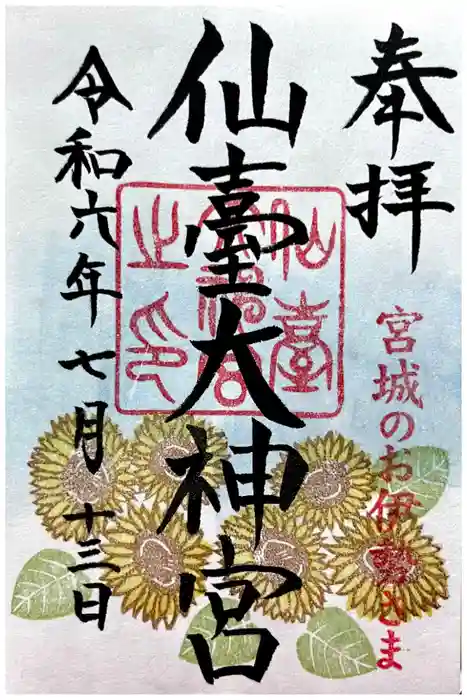 奉拝
宮城のお伊勢さま
仙臺大神宮
仙臺
大神宮
之印
令和六年七月十三日